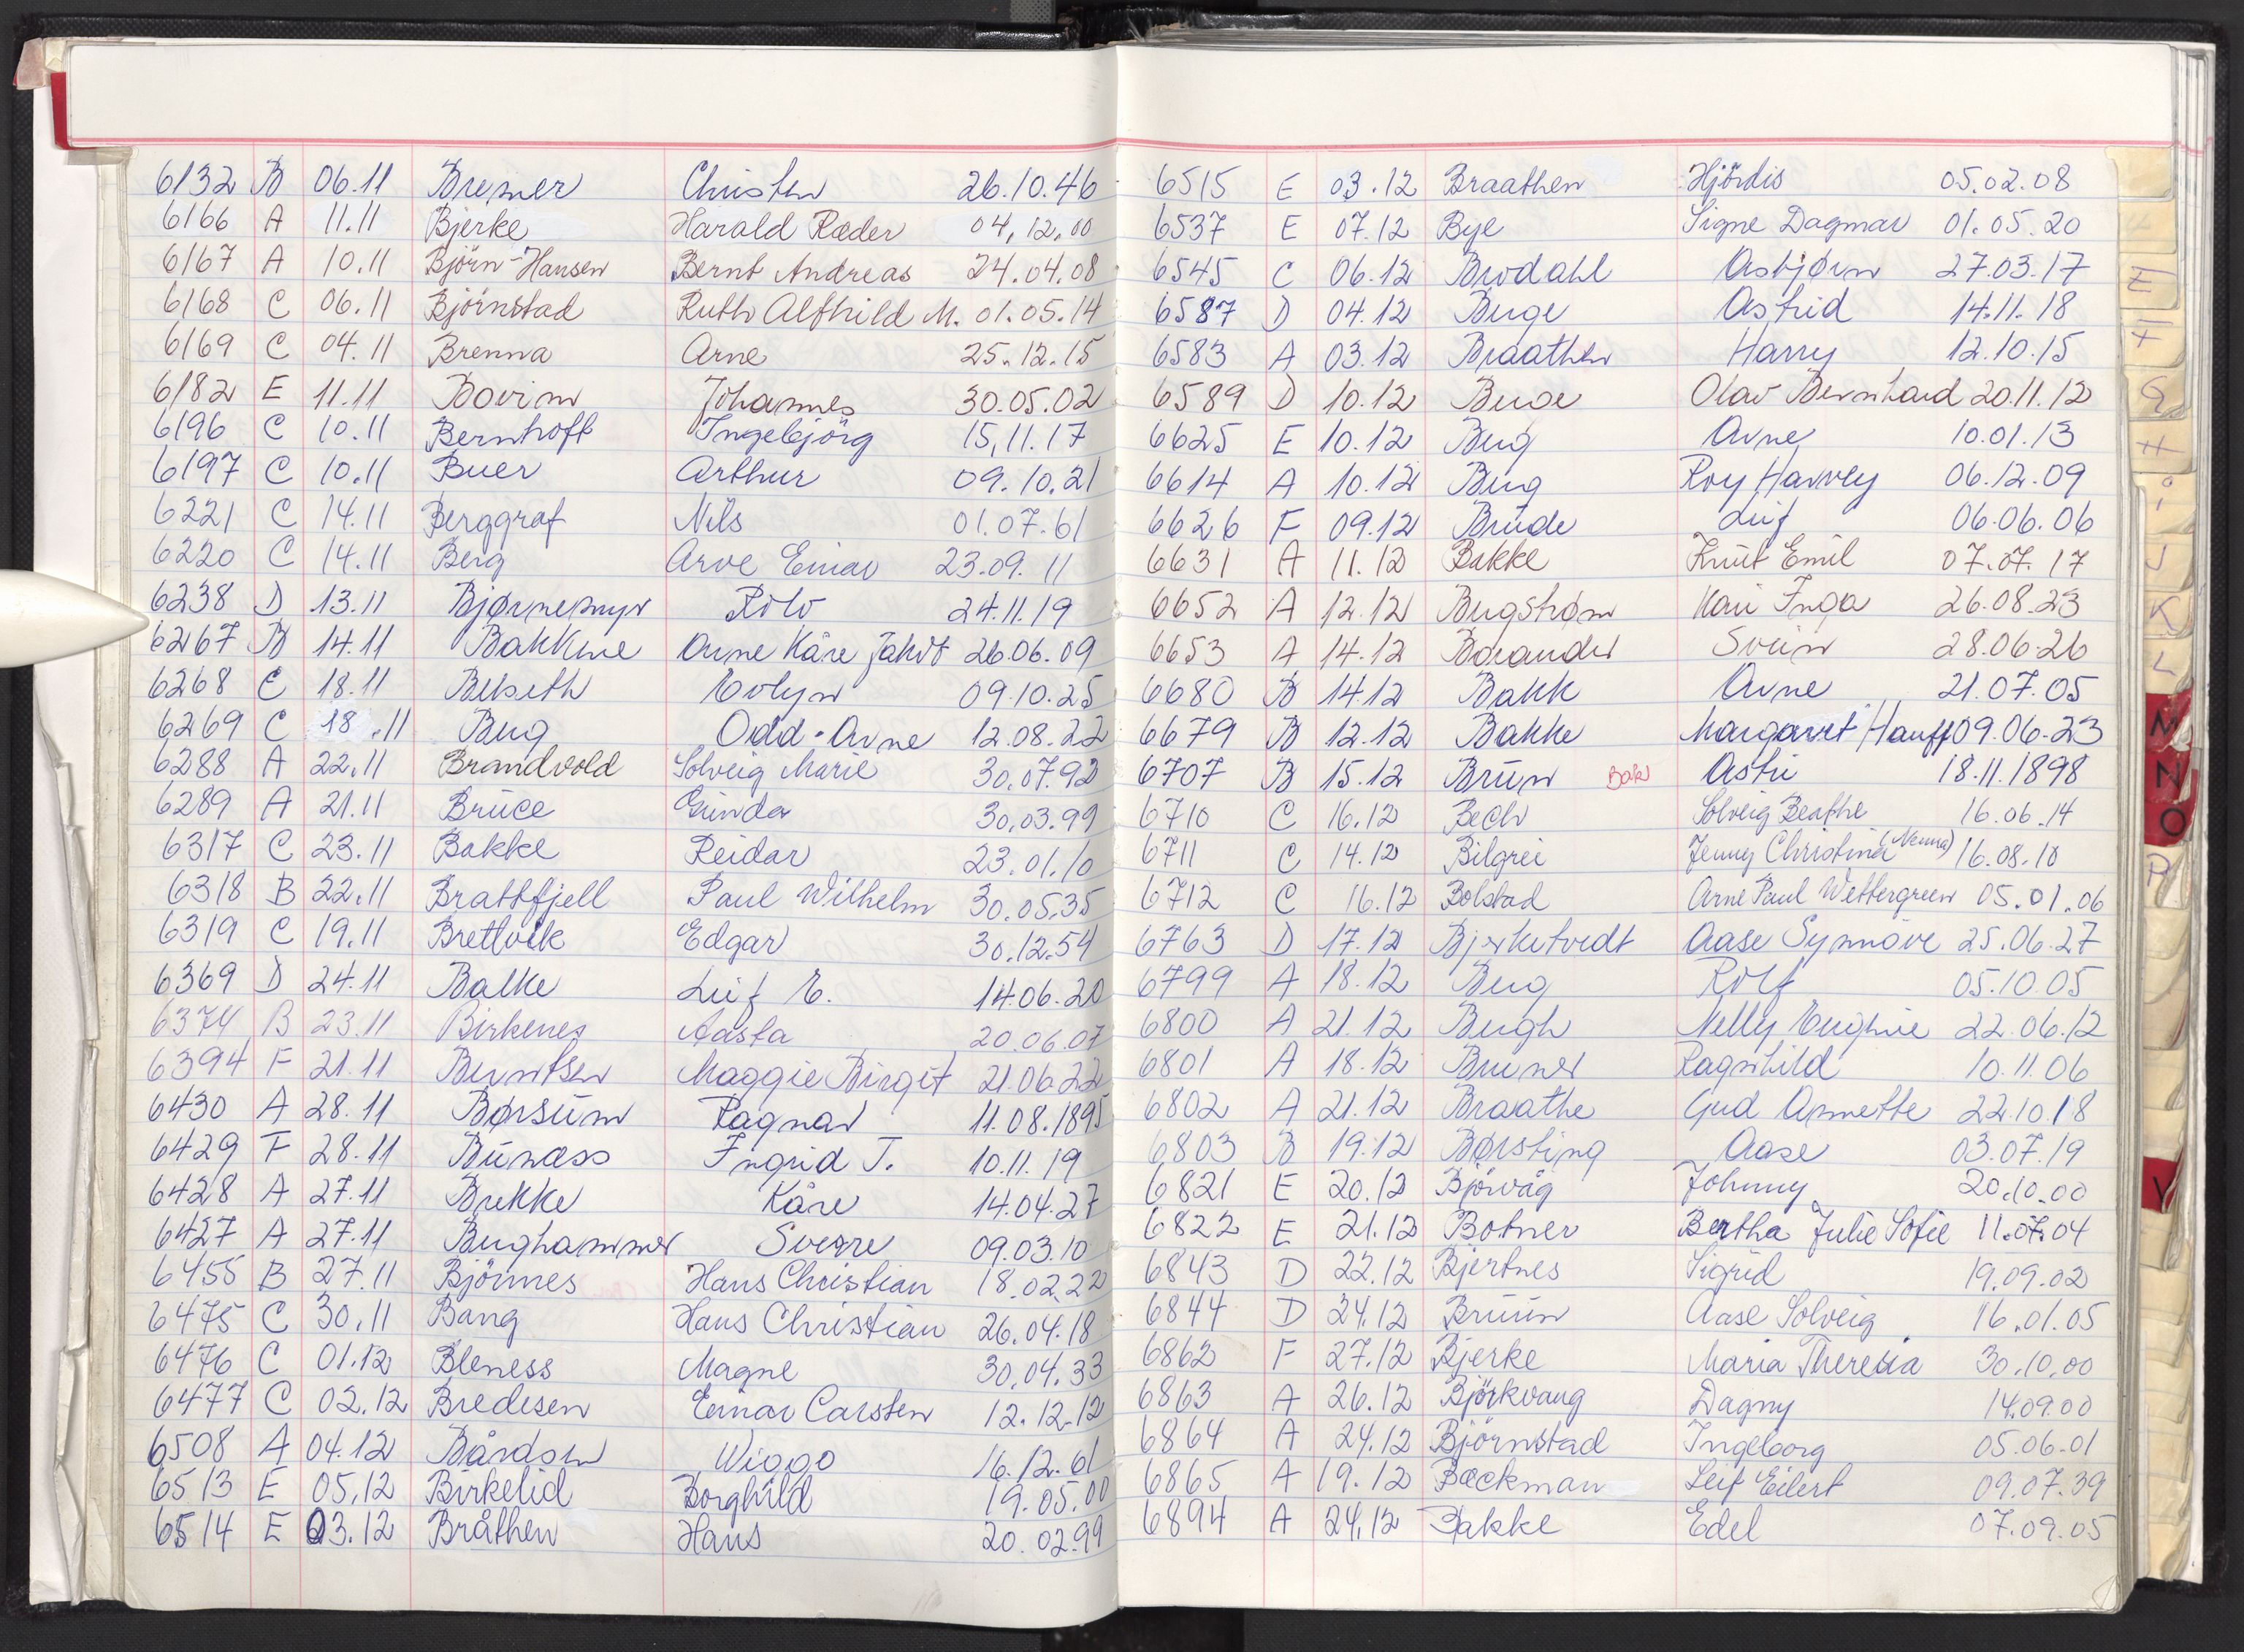 6132 B 06.11 Bremer Christen 26.10.46
6166 A 11.11 Bjerke Harald Ræder 04,12,00
6167 A 10.11 Bjørn-Hansen Bernt Andreas 24.04.08
6168 C 06.11 Bjørnstad Ruth Alfhild M. 01.05.14
6169 C 04.11 Brenna Arne 25.12.15
6182 E 11.11 Bovim Johannes 30.05.02
6196 C 10.11 Bernhoft Ingebjörg 15,11.17
6197 C 10.11 Buer Arthur 09.10.21
6221 C 14.11 Berggraf Nils 01.07.61
6220 C 14.11 Berg Arve Einar 23.09.11
6238 D 13.11 Bjørnemyr Rolv 24.11.19
6267 B 14.11 Bakkene Arne Kåre 26.06.09
6268 C 18.11 Belseth Evelyn 09.10.25
6269 C 18.11 Berg Odd-Arne 12.08.22
6288 A 22.11 Brandvold Solveig Marie 30.07.92
6289 A 21.11 Bruce Gunda 30.03.99
6317 C 23.11 Bakke Reidar 23.01.10
6318 B 22.11 Brattfjell Paul Wilhelm 30.05.35
6319 C 19.11 Brettvik Edgar 30.12.54
6369 D 24.11 Balke Leif E. 14.06.20
6374 B 23.11 Birkenes Aasta 20.06.07
6394 F 21.11 Berntsen Maggie Birgit 21.06.22
6430 A 28.11 Børsum Ragnar 11.08.1895
6429 F 28.11 Bunæss Ingrid T. 10.11.19
6428 A 27.11 Brekke Kåre 14.04.27
6427 A 27.11 Berghammer Sverre 09.03.10
6455 B 27.11 Björnnes Hans Christian 18.02.22
6475 C 30.11 Bang Hans Christian 26.04.18
6476 C 01.12 Bleness Magne 30.04.33
6477 C 02.12 Bredesen Einar Carsten 12.12.12
6508 A 04.12 Bårdsen Wiggo 16.12.61
6513 E 05.12 Birkelid Borghild 19.05.00
6514 E 03.12 Bråthen Hans 20.02.99
6515 E 03.12 Braathen Hjördis 05.02.08
6537 E 07.12 Bye Signe Dagmar 01.05.20
6545 C 06.12 Brodahl Asbjørn 27.03.17
6587 D 04.12 Berge Astrid 14.11.18
6583 A 03.12 Braathen Harry 12.10.15
6589 D 10.12 Berge Olav Bernhard 20.11.12
6625 E 10.12 Berg Arne 10.01.13
6614 A 10.12 Berg Roy Harvey 06.12.09
6626 F 09.12 Brude Leif 06.06.06
6631 A 11.12 Bakke Knut Emil 07.07.17
6652 A 12.12 Bergstrøm Kari Inga 26.08.23
6653 A 14.12 Borander Svein 28.06.26
6680 B 14.12 Bakk Arne 21.07.05
6679 B 12.12 Bakke Margaret Hauff 09.06.23
6707 B 15.12 Brun Bak Astri 18.11.1898
6710 C 16.12 Bech Solveig Beathe 16.06.14
6711 C 14.12 Bilgrei Jenny Christina (Nenna) 16.08.10
6712 C 16.12 Bolstad Arne Paul Wettergreen 05.01.06
6763 D 17.12 Bjerketvedt Aase Synnöve 25.06.27
6799 A 18.12 Berg Rolf 05.10.05
6800 A 21.12 Bergh Nelly Eugenie 22.06.12
6801 A 18.12 Bruner Ragnhild 10.11.06
6802 A 21.12 Braathe Gud Annette 22.10.18
6803 B 19.12 Børsting Aase 03.07.19
6821 E 20.12 Björvåg Johnny 20.10.00
6822 E 21.12 Botner Bertha Julie Sofie 11.07.04
6843 D 22.12 Bjertnes Sigrid 19.09.02
6844 D 24.12 Bruun Aase Solveig 16.01.05
6862 F 27.12 Bjerke Maria Theresia 30.10.00
6863 A 26.12 Björkvang Dagny 14.09.00
6864 A 24.12 Björnstad Ingeborg 05.06.01
6865 A 19.12 Bæckman Leif Eilert 09.07.39
6894 A 24.12 Bakke Edel 07.09.05
E
F
G
H
i
J
K
L
M
N
O
P
V